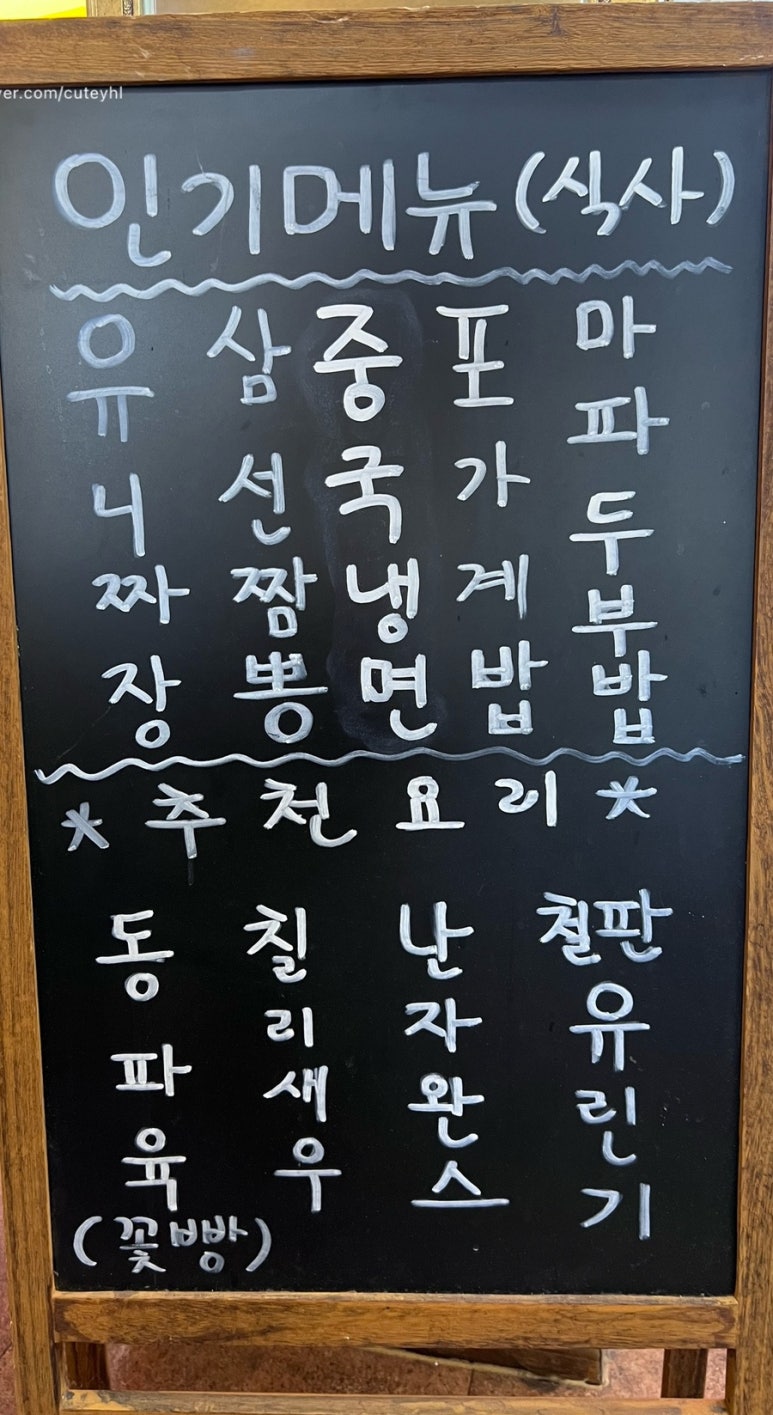 ver.com/cuteyhl
인기메뉴(식사)
유니짜장
삼선짬뽕
중국냉면
포가계밥
마파두부밥
*추천요리*
동파육
(꽃빵)
칠리새우
난자완스
철판유린기